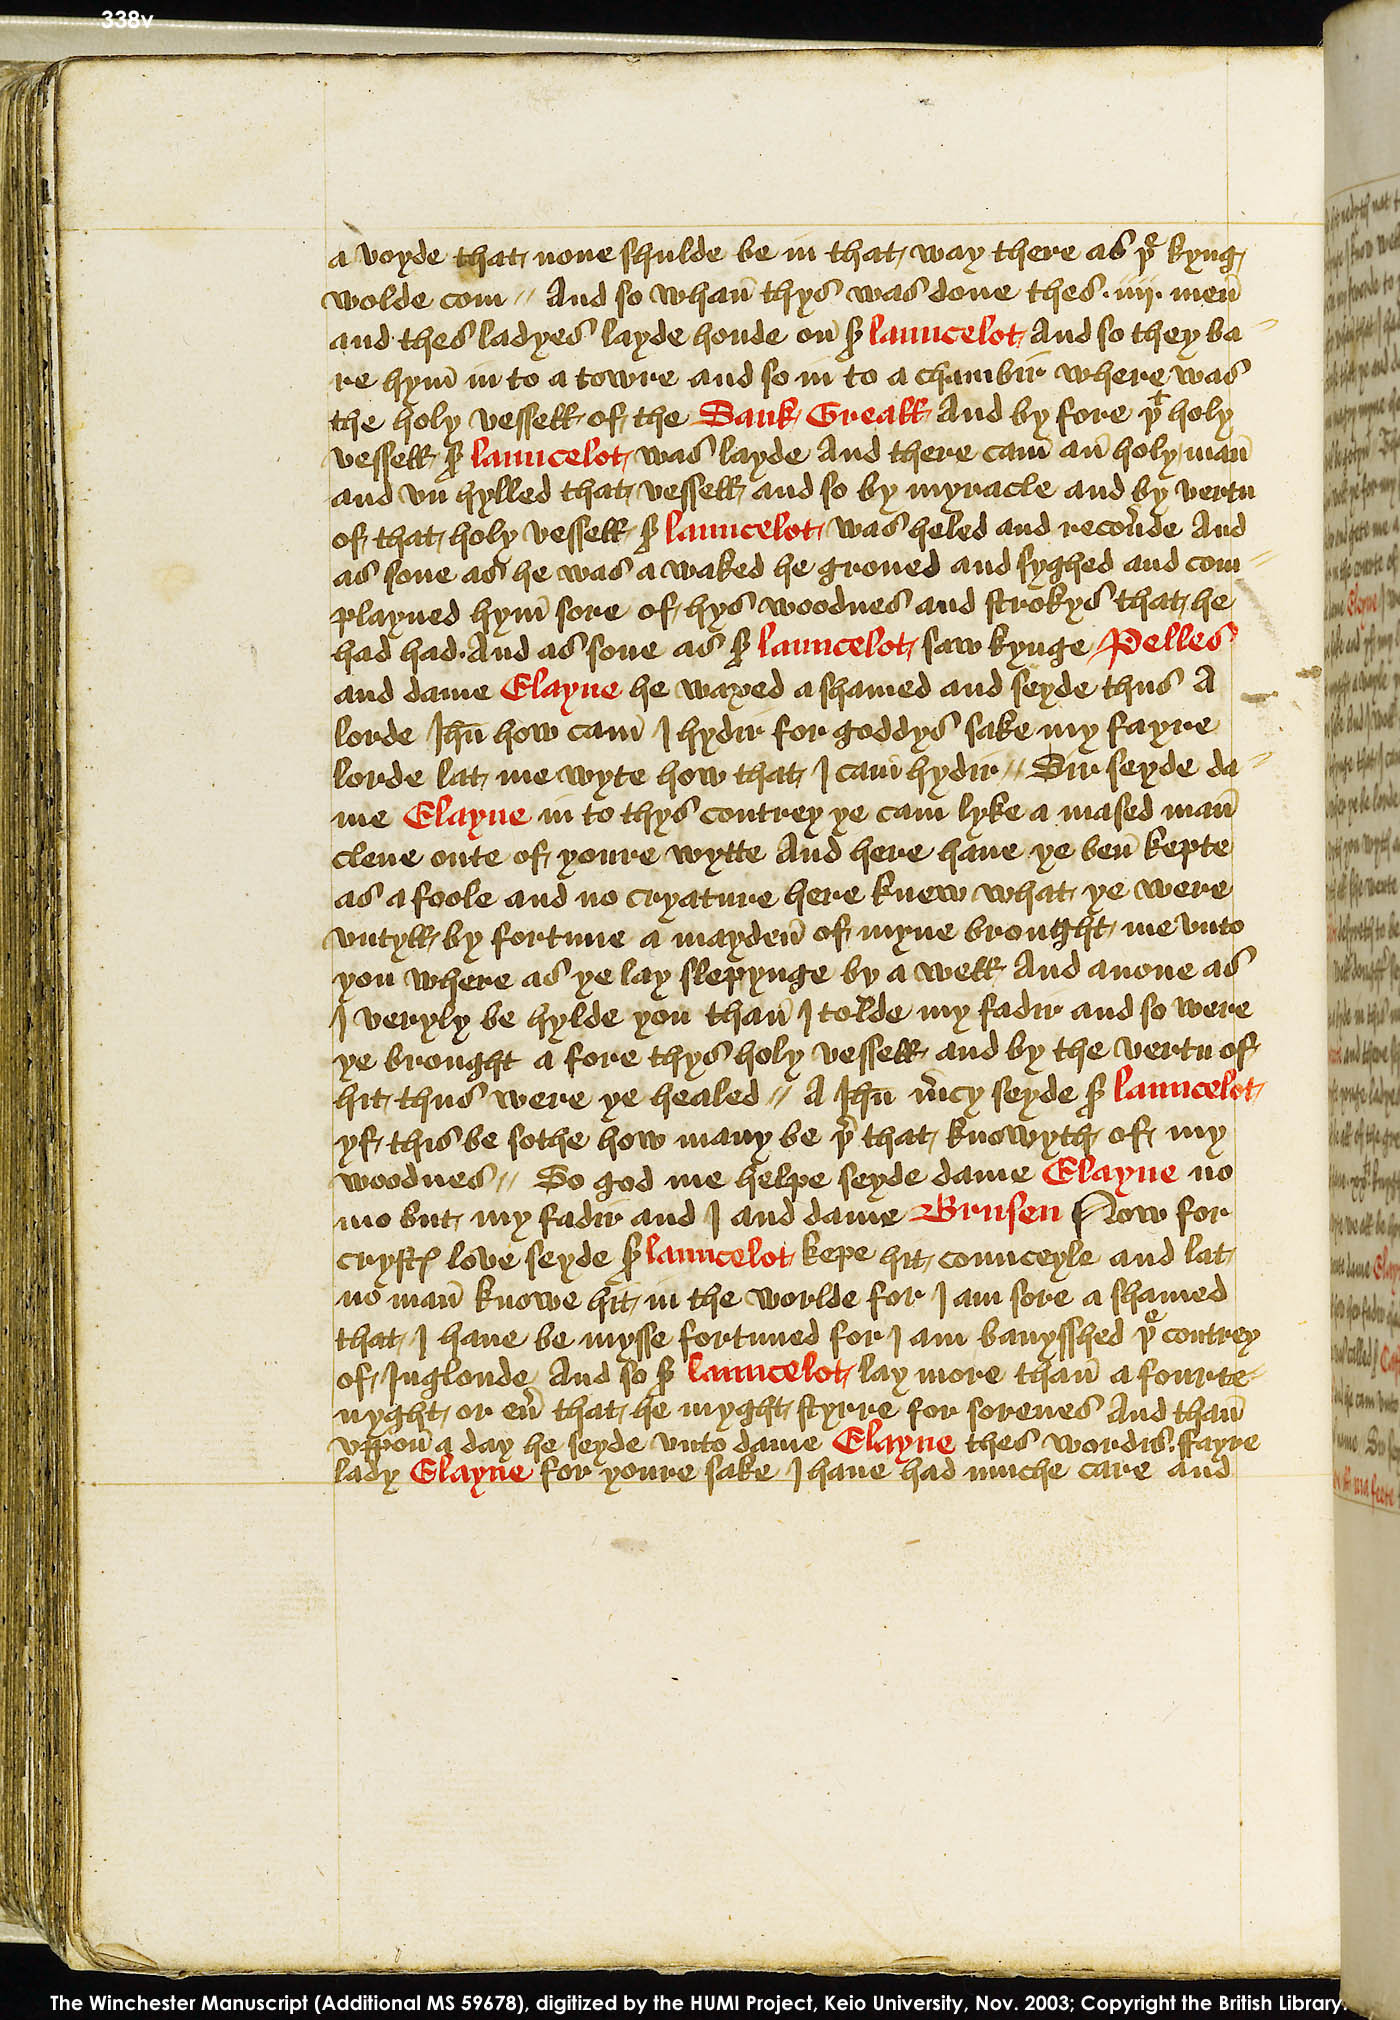 338v
a voyde that none shulde be in that way there as þe kyng
wolde com // And so whan̄ thys was done thes .iiij. men̄
and thes ladyes layde honde on̄ sr̄ launcelot And so they ba
re hym̄ in to a towre and so in to a chambir where was
the holy vessell of the Sank Greall And by fore þt holy
vessell sr̄ launcelot was layde And there cam̄ an̄ holy man̄
and vn hylled that vessell and so by myracle and by vertu
of that holy vessell sr̄ launcelot was heled and recou̾de And
as sone as he was a waked he groned and syghed and com
playned hym̄ sore of hys woodnes and strokys that he
had had. And as sone as sr̄ launcelot saw kynge Pelles
and dame Elayne he waxed a shamed and seyde thus A
lorde Jhū how cam̄ I hydir for goddys sake my fayre
lorde lat me wyte how that I cam̄ hydir // Sir seyde da
me Elayne in to thys contrey ye cam lyke a mased man̄
clene oute of youre wytte And here haue ye ben̄ kepte
as a foole and no cryature here knew what ye were
vntyll by fortune a mayden̄ of myne brought me vnto
you where as ye lay slepynge by a well And anone as
I veryly be hylde you than̄ I tolde my fadir and so were
ye brought a fore thys holy vessell and by the vertu of
hit thus were ye healed // A Jhū m̾cy seyde sr̄ launcelot
yf this be sothe how many be þ̾ that knowyth of my
woodnes // So god me helpe seyde dame Elayne no
mo but my fadir and I and dame Brusen Now for
crystꝭ love seyde sr̄ launcelot kepe hit counceyle and lat
no man̄ knowe hit in the worlde for I am sore a shamed
that I haue be mysse fortuned for I am banysshed þe contrey
of Inglonde And so sr̄ launcelot lay more than̄ a fourte
nyght or eu̾ that he myght styrre for sorenes And than̄
vppon̄ a day he seyde vnto dame Elayne thes wordis. ffayre
lady Elayne for youre sake I haue had muche care and
The Winchester Manuscript (Additional MS 59678), digitized by the HUMI Project, Keio University, Nov. 2003; Copyright the British Library.